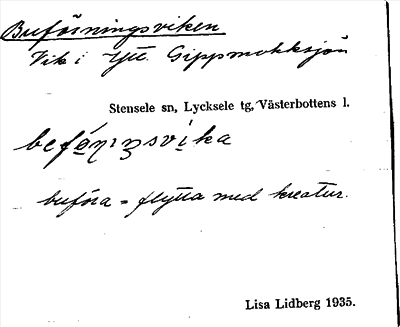 Buföringsviken
Vik i Ytt. Gippmokksjön
Stensele sn, Lycksele tg, Västerbottens l.
buföra = flytta med kreatur.
Lisa Lidberg 1935.